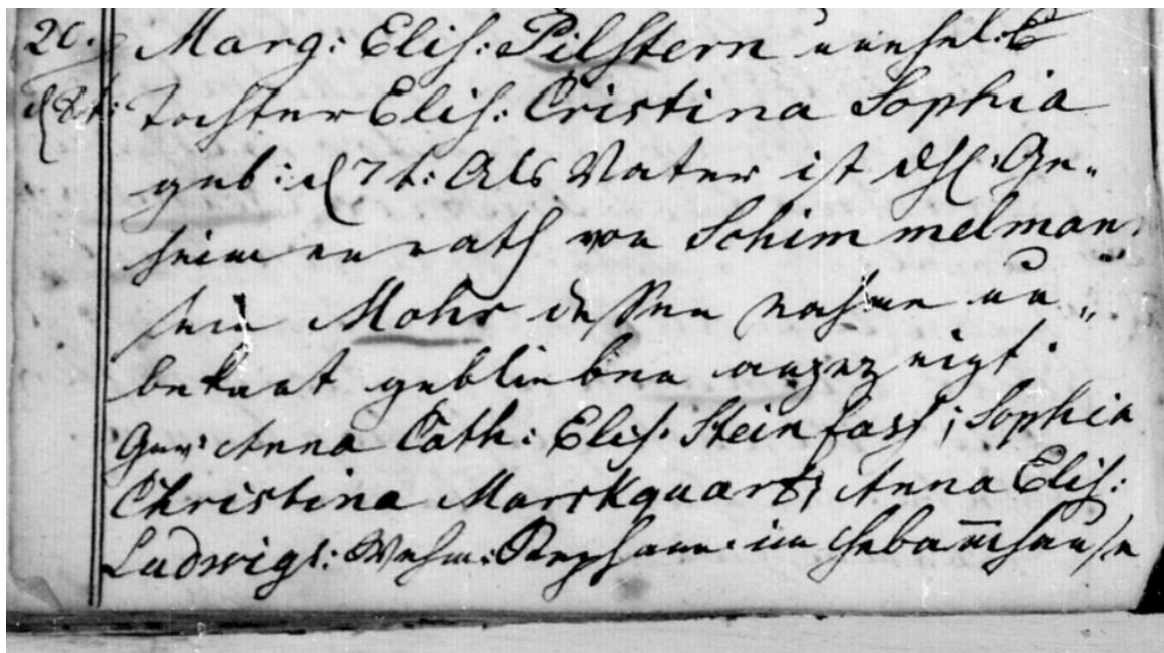 20. Marg: Elis: Pilstern unehel:
d 8t: Tochter Elis: Cristina Sophia
geb: d 7t: Als Vater ist des H: Ge„
heimenrath von Schimmelman
sein Mohr dessen nahme un„
bekant geblieben angezeigt.
Gev: Anna Cath: Elis: Steinfass; Sophia
Christina Marckquart; Anna Elis:
Ludwigs: Wehm: im Hebamhause